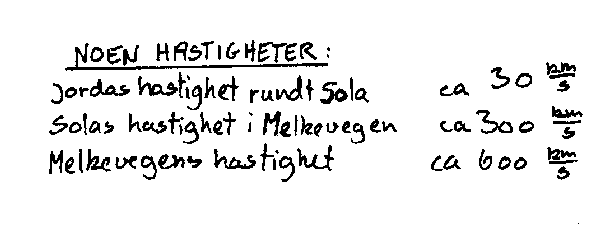 NOEN HASTIGHETER:
Jordas hastighet rundt Sola ca 30 km/s
Solas hastighet i Melkevegen ca 300 km/s
Melkevegens hastighet ca 600 km/s